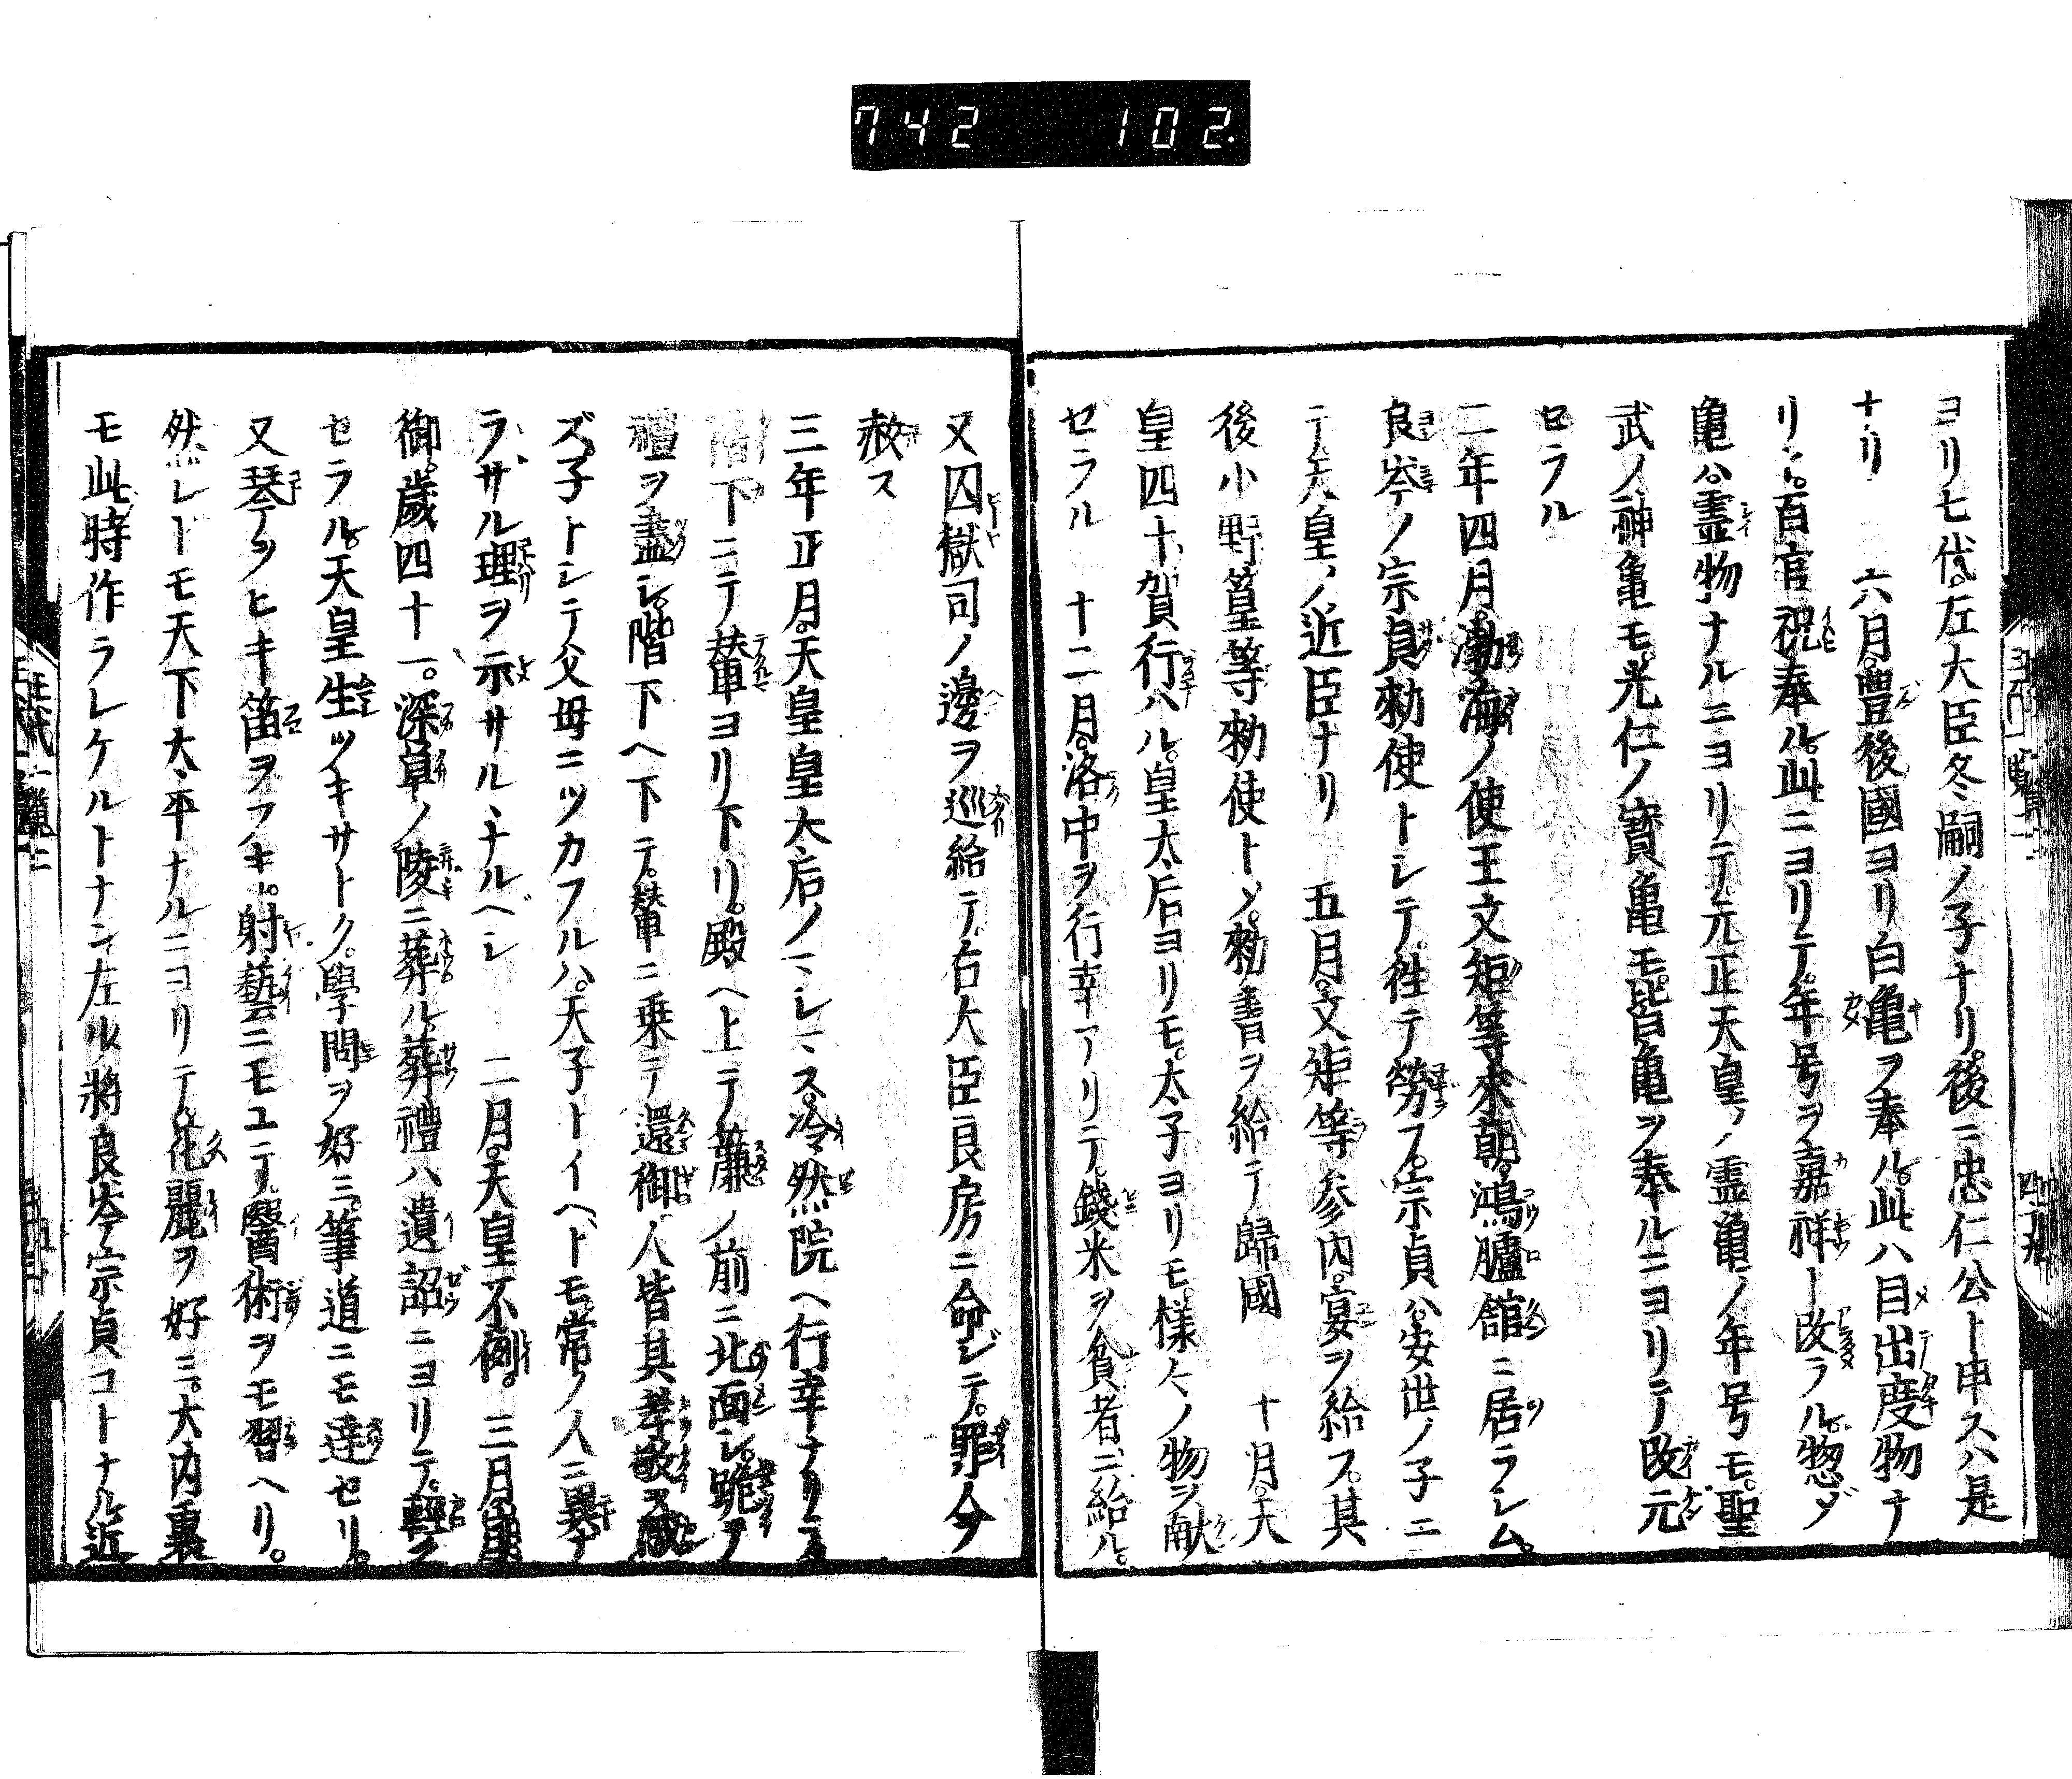 742 102.
ヨリ七代。左大臣冬嗣ノ子ナリ。後ニ忠仁公ト申スハ是
ナリ 六月。豊後國ヨリ白亀ヲ奉ル。此ハ目出度物ナ
リト。百官祝奉ル。此ニヨリテ。年号ヲ嘉祥ト改ラル。惣ダ
亀ハ。霊物ナルニヨリテ。元正天皇ノ霊亀ノ年号モ。聖
武ノ神亀モ。光仁ノ寳亀モ。皆亀ヲ奉ルニヨリテ改元
セラル
二年四月。渤海ノ使王文矩等來朝。鴻臚舘ニ居ラシム。
良岑ノ宗貞勅使トシテ。徃テ勞フ。宗貞ハ。安世ノ子ニ
テ。天皇ノ近臣ナリ 五月。文矩等参内。宴ヲ給フ。其
後小野篁等勅使トメ。勅書ヲ給テ歸國 十月。天
皇四十賀行ハル。皇太后ヨリモ。太子ヨリモ。様々ノ物ヲ献
ゼラル 十二月。洛中ヲ行幸アリテ。錢米ヲ貧者ニ給ル。
又囚獄司ノ邊ヲ巡給テ。右大臣良房ニ命ジテ。罪人ヲ
赦ス
三年正月。天皇皇太后ノマシマス。冷然院ヘ行幸ナリテ
階下ニテ輦ヨリ下リ。殿ヘ上テ。簾ノ前ニ北面シ。跪ヲ
禮ヲ盡シ。階下ヘ下テ。輦ニ乗テ還御。人皆其孝敬ヲ感
ズ。子トシテ父母ニツカフルハ。天子トイヘトモ常ノ人ニ異ナ
ラザル理ヲ示サルヽナルベシ 二月。天皇不例。 三月崩
御。歳四十一。深草ノ陵ニ葬ル。葬禮ハ遺詔ニヨリテ。輕ク
セラル。天皇生ツキサトク。學問ヲ好ミ。筆道ニモ達セリ。
又琴ヲヒキ笛ヲフキ。射藝ニモユニテ。醫術ヲモ習ヘリ。
然レトモ天下太平ナルニヨリテ。花麗ヲ好ミ。大内裏
モ此時作ラレケルトナン。左少將良岑宗貞コトナル近